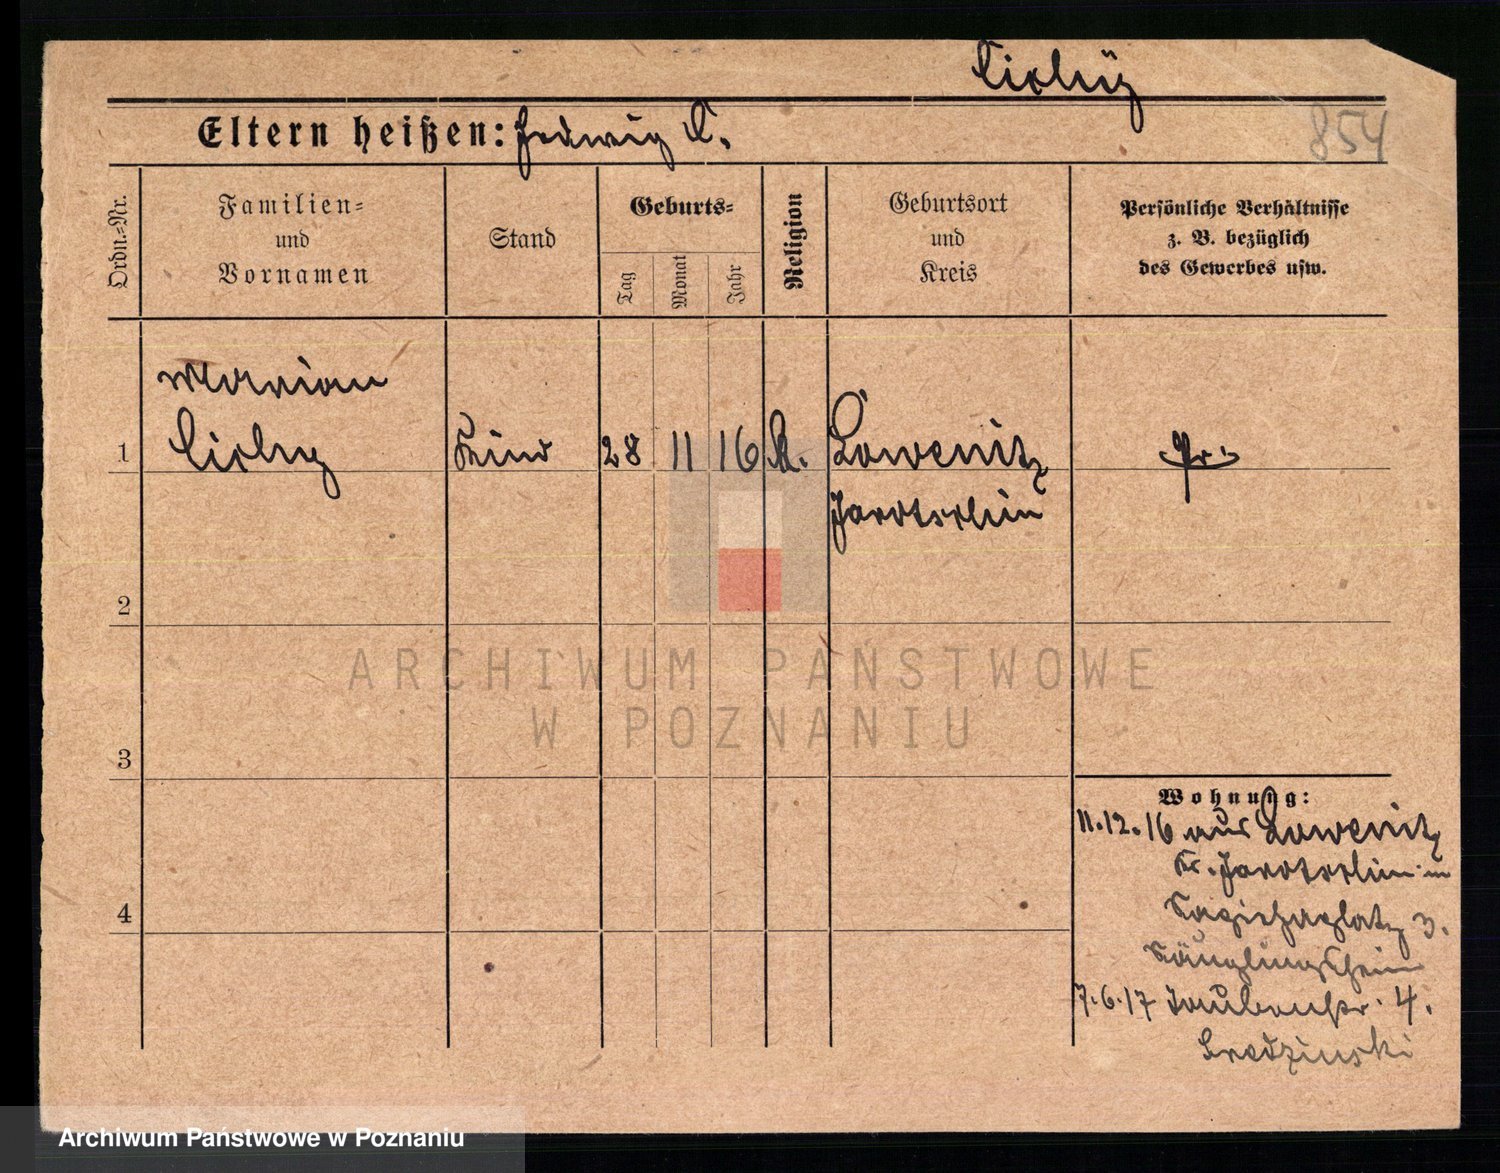 Cichy
854
Eltern heißen: Hedwig C.
Ordn.-Nr.
Familien-
und
Vornamen
Stand
Geburts-
Tag
Monat
Jahr
Religion
Geburtsort
und
Kreis
Persönliche Verhältnisse
z. B. bezüglich
des Gewerbes usw.
Marian
1 Cichy Kind 28 11 16 K. Lowenitz Pr.
Jarotschin
2
3
4
Wohnung:
11.12.16 aus Lowenitz
Kr. Jarotschin in
3.
Säuglingsheim
7.6.17 Taubenstr. 4.
Sredzinski
ARCHIWUM PAŃSTWOWE
W POZNANIU
Archiwum Państwowe w Poznaniu